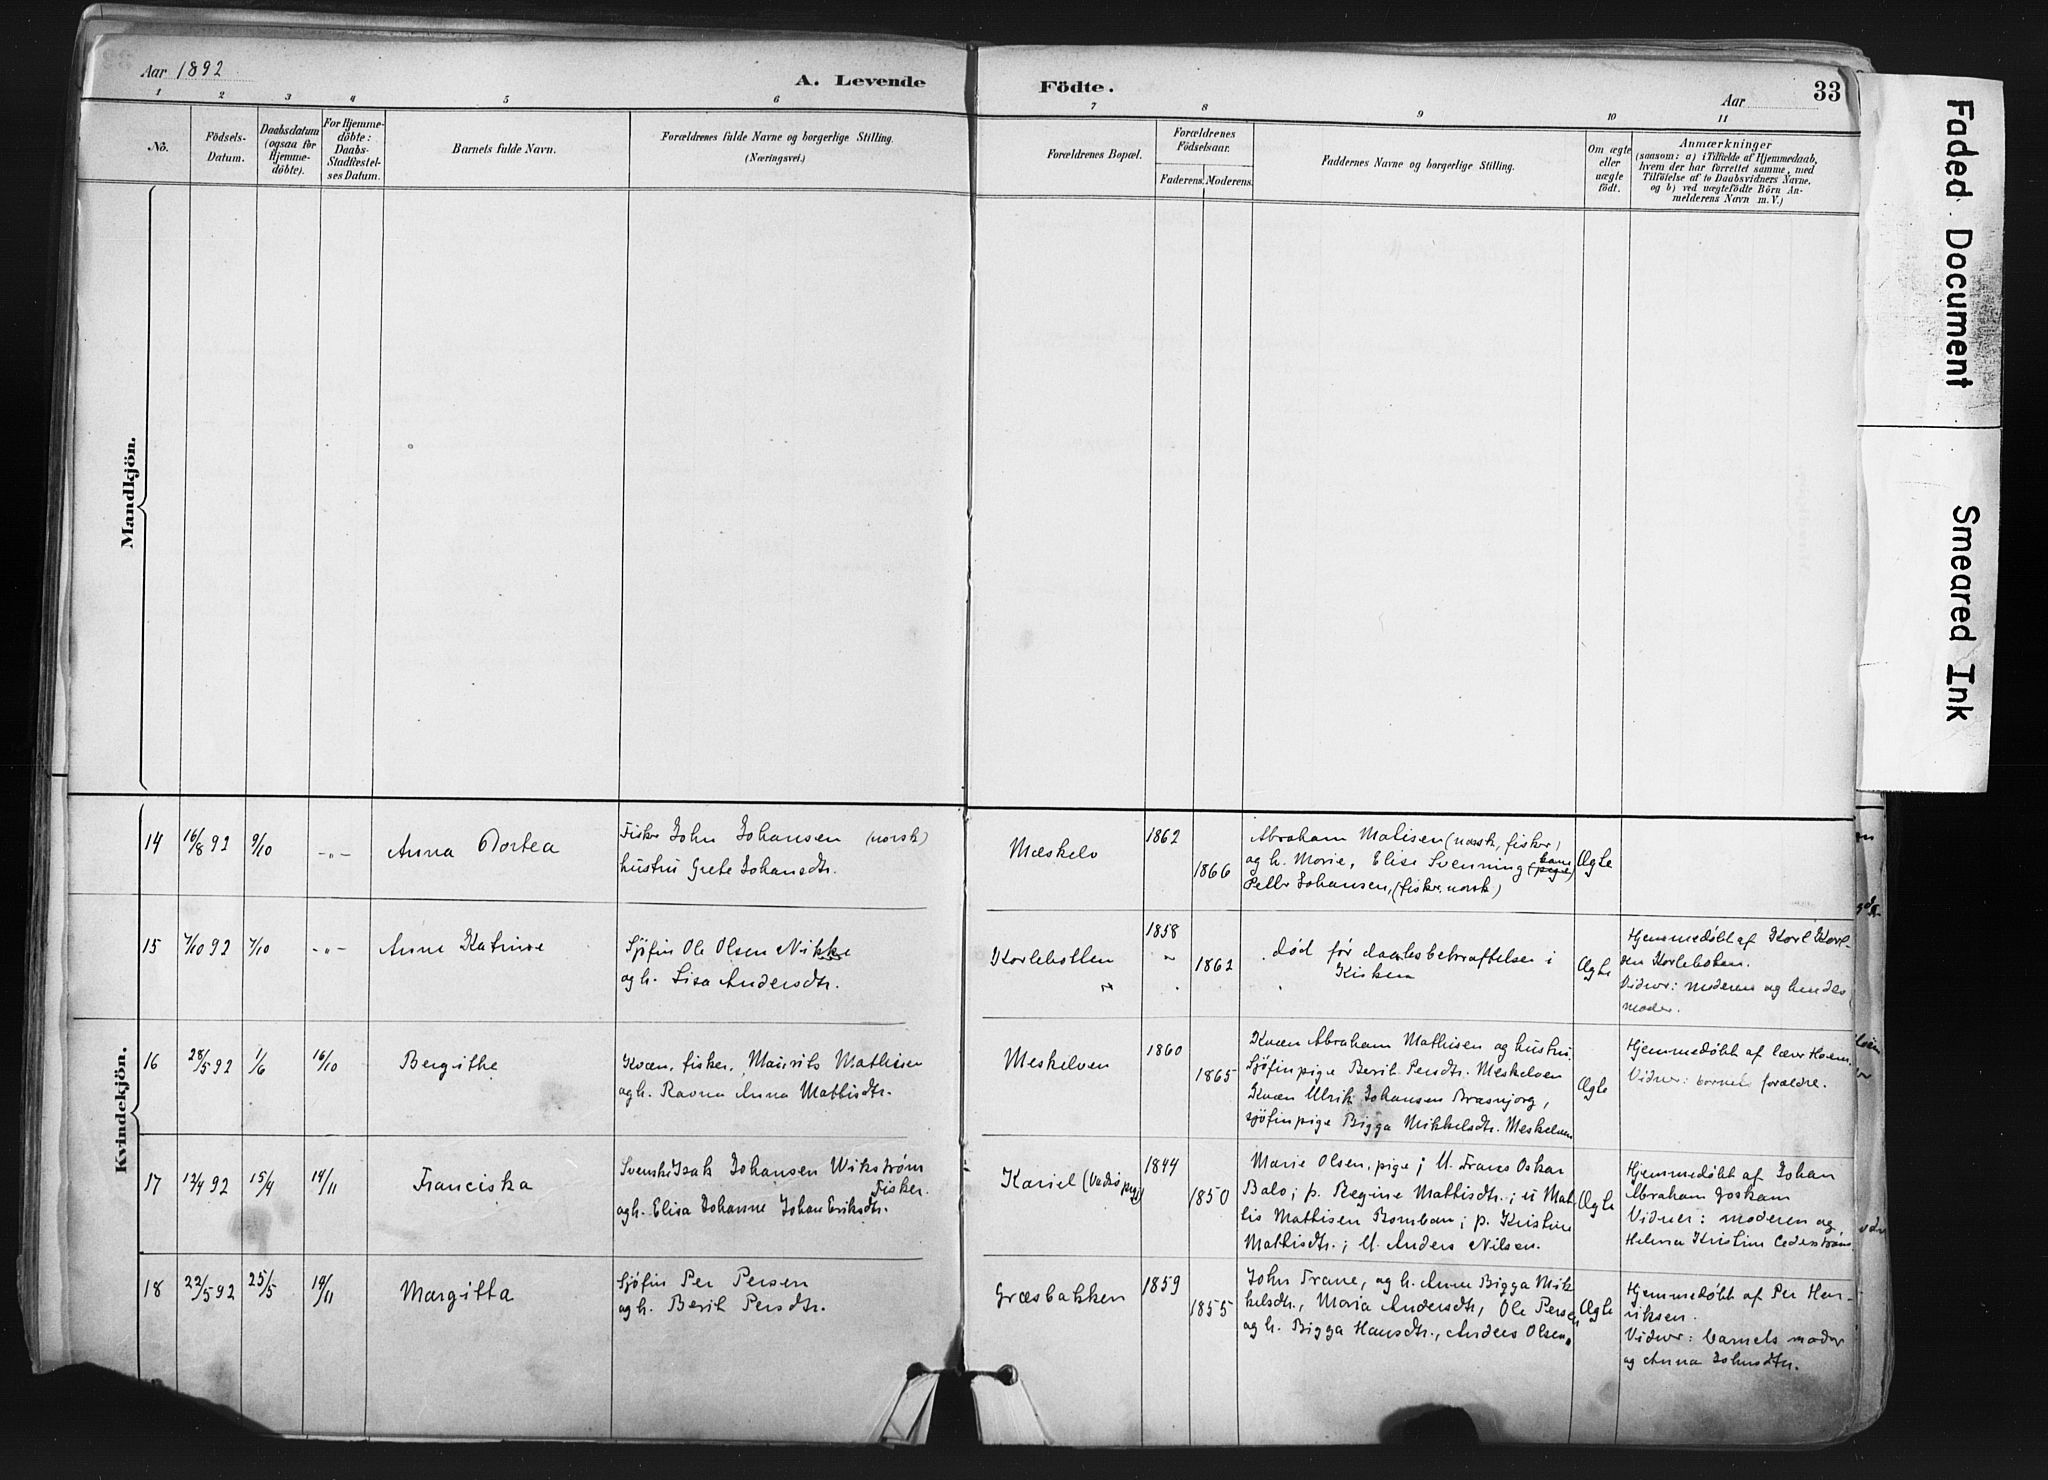 Aar 1892
A. Levende Födte.
Aar
33
1 2 3 4 5 6 7 8 9 10 11
No.
Födsels-
Datum.
Daabsdatum
(ogsaa for
Hjemme-
döbte).
For Hjemme-
döbte:
Daabs-
Stadfæstel-
ses Datum.
Barnets fulde Navn.
Forældrenes fulde Navne og borgerlige Stilling.
(Næringsvei.)
Forældrenes Bopæl.
Forældrenes
Födselsaar.
Faderens. Moderens.
Faddernes Navne og borgerlige Stilling.
Om ægte
eller
uægte
födt.
Anmærkninger
(saasom: a) i Tilfælde af Hjemmedaab,
hvem der har forrettet samme, med
Tilföielse af to Daabsvidners Navne,
og b) ved uægtefödte Börn An-
melderens Navn m. V.)
Mandkjön.
Kvindekjön.
14
16/8 92
9/10
-"-
Anna Dortea
Fisker John Johansen (norsk)
hustru Grete Johansdtr.
Mæskelv
1862
1866
Abraham Matisen (norsk, fisker)
og h. Marie, Elise Svenning
Petter Johansen, (fisker, norsk)
Ægte
15
7/10 92
7/10
-"-
Anne Katrine
Sjöfin Ole Olsen Nikke
og h. Lisa Andersdtr.
Karlebotten
"
1858
"
1862
død før daabsbekræftelsen i
Kirken
Ægte
Hjemmedøbt af Karl Karl-
sen Karleboten.
Vidner: moderen og hendes
moder.
16
28/5 92
1/6
16/10
Bergithe
Kvæn, fisker, Maurits Mathisen
og h. Ravna Anna Mattisdtr.
Meskelven
1860
1865
Kvæn Abraham Mathisen og hustru
Sjöfinpige Berit Persdtr. Meskelven
Kvæn Ulrik Johansen Brasnjorg,
sjöfinpige Bigga Mikkelsdtr. Meskelven
Ægte
Hjemmedøbt af lærer
Vidner: barnets forældre.
17
12/4 92
15/4
14/11
Franciska
Svenske Isak Johansen Wikström
Fisker.
og h. Elisa Johanne Johan Eriksdtr.
Kariel
1844
1850
Marie Olsen, pige; U. Frans Oskar
Balo; p. Regine Mattisdtr.; U Mat-
tis Mathisen Bomban; p. Kristine
Mathisdtr.; U. Anders Nilsen.
Ægte
Hjemmedøbt af Johan
Abraham Joskam
Vidner: moderen og
Helena Kristine Cederström.
18
22/5 92
25/5
14/11
Margitta
Sjöfin Per Persen
og h. Berit Persdtr.
Græsbakken
1859
1855
John Trane, og h. Anne Bigga Mik-
kelsdtr., Maria Andersdtr, Ole Persen
og h. Bigga Hansdtr., Anders Olsen.
Ægte
Hjemmedøbt af Per Hen-
riksen.
Vidner: barnets moder
og Anna Johnsdtr.
Faded Document
Smeared Ink